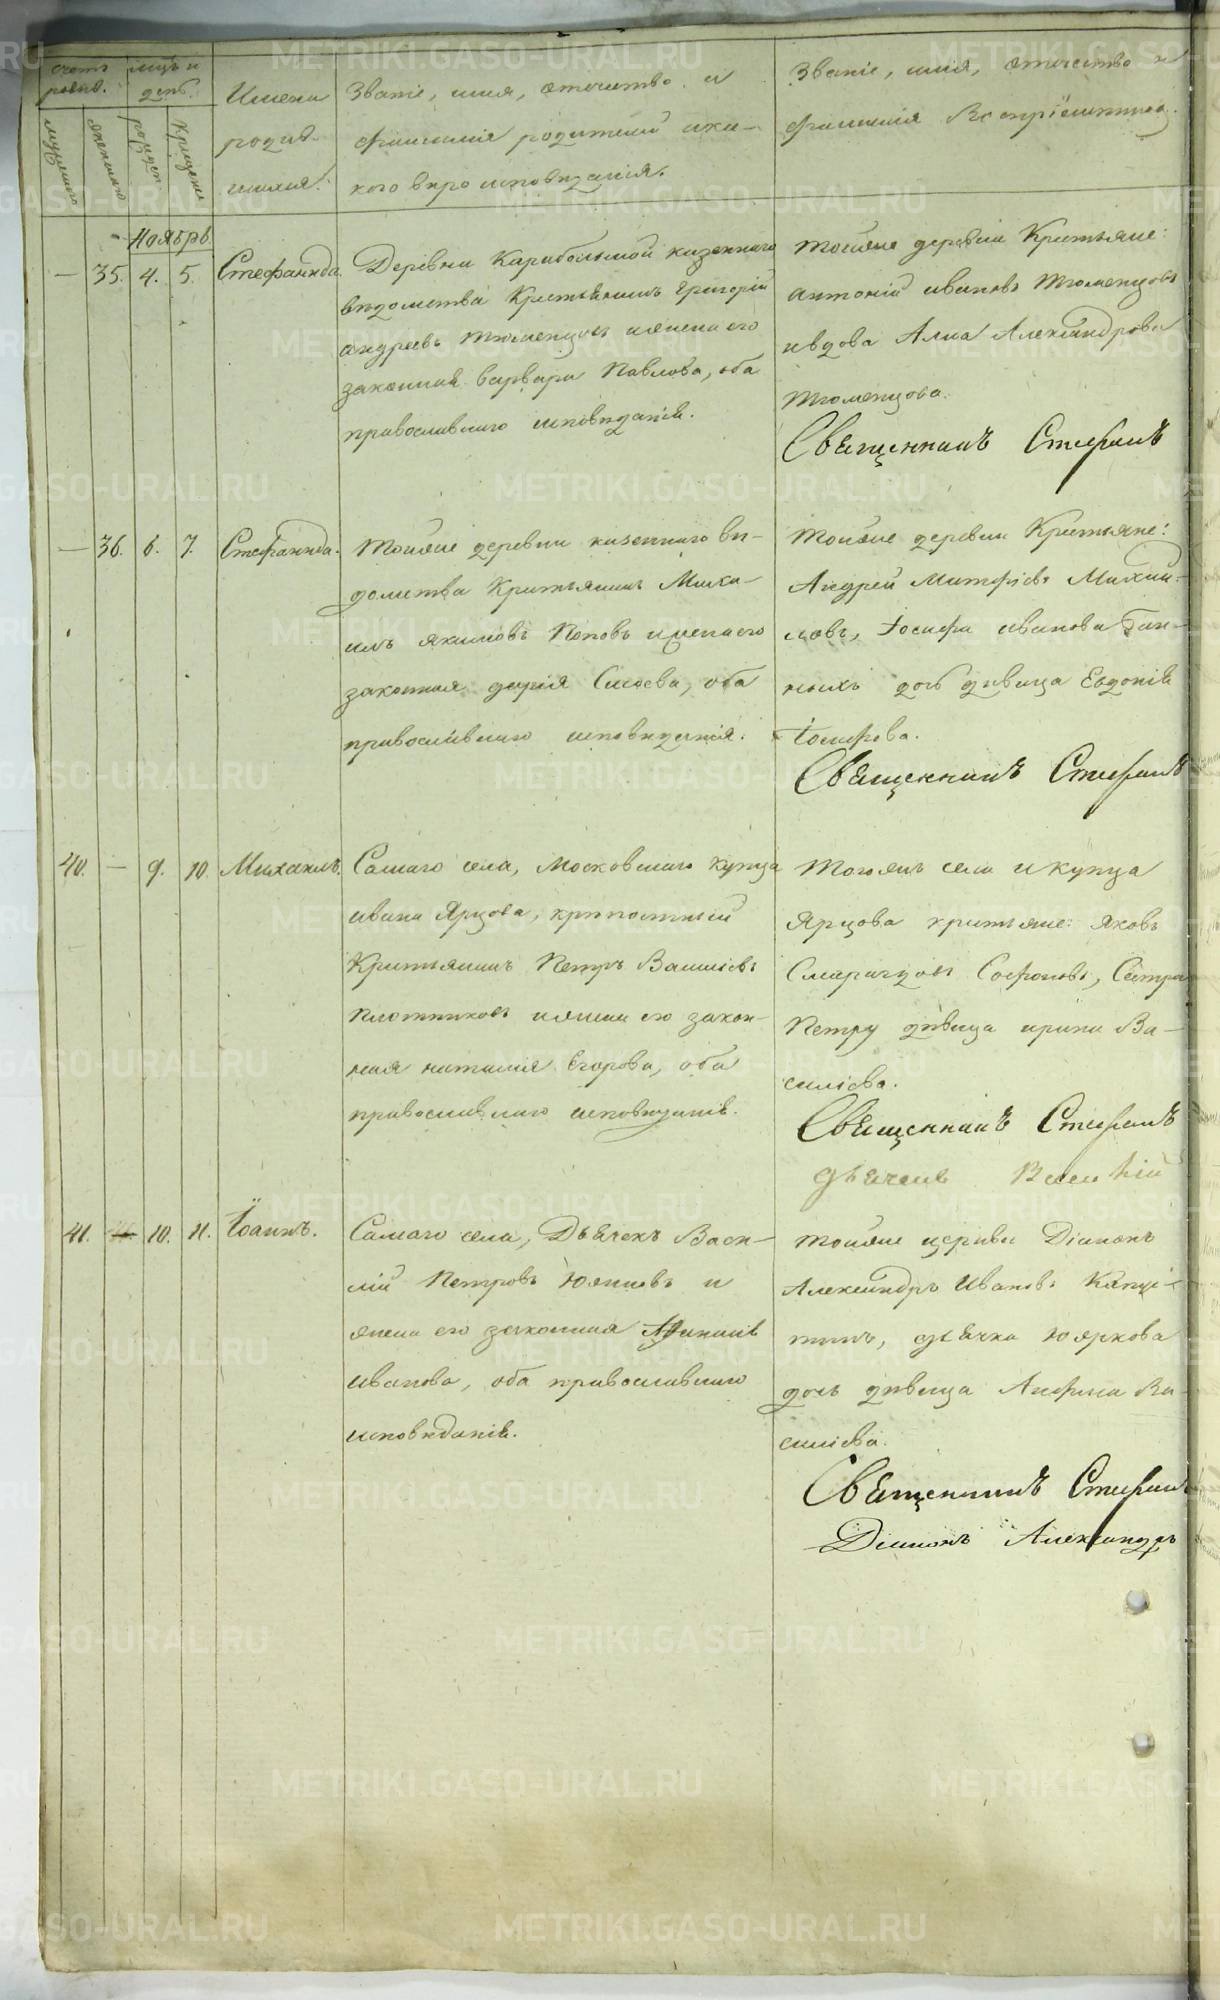 счетъ родив.
мужеска
женска
мцъ и день.
рожден.
крещенія
Имена родив-
шихся.
Званіе, имя, отчество и
фамилія родителей и ка-
кого вѣроисповѣданія.
Званіе, имя, отчество и
фамилія Воспріемниковъ.
Ноябрь
— 35. 4. 5. Стефанида.
Деревни Карабольской казеннаго
вѣдомства Крестьянинъ Григорій
Андреевъ Тюменцовъ и жена его
законная Варвара Павлова, оба
православнаго исповѣданія.
Тойже деревни Крестьяне:
Антоній Ивановъ Тюменцовъ
и вдова Анна Александрова
Тюменцова.
Священникъ Стефанъ
— 36. 6. 7. Стефанида.
Тойже деревни казеннаго вѣ-
домства Крестьянинъ Миха-
илъ Якимовъ Поповъ и жена его
законная Дарія Сысоева, оба
православнаго исповѣданія.
Тойже деревни Крестьяне:
Андрей Михай-
ловъ, Іосифа Иванова
дочь дѣвица Евдокія
Іосифова.
Священникъ Стефанъ
40. — 9. 10. Михаилъ.
Самаго села, Московскаго купца
Ивана Ярцова, крѣпостный
Крестьянинъ Петръ Василіевъ
Плотниковъ и жена его закон-
ная Наталія Егорова, оба
православнаго исповѣданія.
Тогожъ села и купца
Ярцова крестьяне: Яковъ
Софоновъ, Сестра
Петру дѣвица Ирина Ва-
силіева.
Священникъ Стефанъ
Дьячекъ Василій
41. — 10. 11. Іоаннъ.
Самаго села, Дьячекъ Васи-
лій Петровъ и
жена его законная
Иванова, оба православнаго
исповѣданія.
Тойже церкви Діаконъ
Александръ Ивановъ
дьячка
дочь дѣвица Анфиса Ва-
силіева.
Священникъ Стефанъ
Діаконъ Александръ